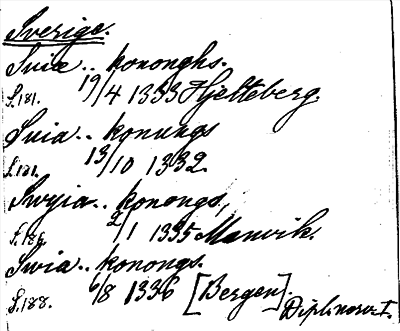 Sverige.
Suia .. kononghs.
S. 181. 19/4 1333 Hjelteberg.
Suia .. konungs
S. 181. 13/10 1332.
Swyia .. konongs,
S. 186. 2/1 1335 Manvik.
Swia .. konongs.
S. 188. 6/8 1336 [Bergen].
Dipl. norv. I.